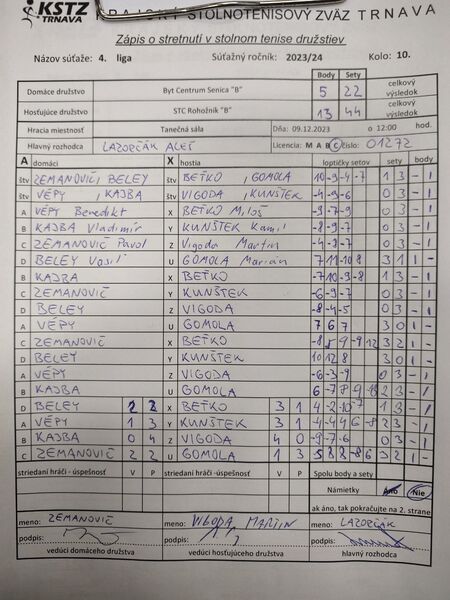 KSTZ TRNAVA KRAJSKÝ STOLNOTENISOVÝ ZVÄZ TRNAVA
Zápis o stretnutí v stolnom tenise družstiev
Názov súťaže: 4. liga Súťažný ročník: 2023/24 Kolo: 10.
Body Sety celkový výsledok
Domáce družstvo Byt Centrum Senica "B" 5 22
Hosťujúce družstvo STC Rohožník "B" 13 44 celkový výsledok
Hracia miestnosť Tanečná sála Dňa: 09.12.2023 o 12:00 hod.
Hlavný rozhodca LAZORČÁK ALEŠ Licencia: M A B C číslo: 01272
A domáci X hostia loptičky setov sety body
štv ZEMANOVIČ, BELEY štv BEŤKO, GOMOLA 10 -9 -4 -7 1 3 - 1
štv VÉPY, KAJBA štv VIGODA, KUNŠTEK -4 -9 -6 0 3 - 1
A VÉPY Benedikt X BEŤKO Miloš -9 -7 -9 0 3 - 1
B KAJBA Vladimír Y KUNŠTEK Kamil -8 -9 -7 0 3 - 1
C ZEMANOVIČ Pavol Z Vigoda Martin -4 -8 -7 0 3 - 1
D BELEY Vasil U GOMOLA Marián 7 11 -10 8 3 1 1 -
B KAJBA X BEŤKO -7 10 -9 -8 1 3 - 1
C ZEMANOVIČ Y KUNŠTEK -6 -9 -7 0 3 - 1
D BELEY Z VIGODA -8 -4 -5 0 3 - 1
A VÉPY U GOMOLA 7 6 7 3 0 1 -
C ZEMANOVIČ X BEŤKO 9 -9 12 3 2 1 -
D BELEY Y KUNŠTEK 10 12 8 3 0 1 -
A VÉPY Z VIGODA -6 -3 -9 0 3 - 1
B KAJBA U GOMOLA 6 -7 8 2 3 - 1
D BELEY 2 2 X BEŤKO 3 1 4 -2 -10 -7 1 3 - 1
A VÉPY 1 3 Y KUNŠTEK 3 1 -4 -4 6 -8 1 3 - 1
B KAJBA 0 4 Z VIGODA 4 0 -9 -7 -6 0 3 - 1
C ZEMANOVIČ 2 2 U GOMOLA 1 3 8 -8 6 3 2 1 -
striedaní hráči - úspešnosť V P striedaní hráči - úspešnosť V P Spolu body a sety
Námietky Áno Nie
ak áno, tak pokračujte na 2. strane
meno: ZEMANOVIČ meno: VIGODA MARTIN meno: LAZORČÁK
podpis: podpis: podpis:
vedúci domáceho družstva vedúci hosťujúceho družstva hlavný rozhodca